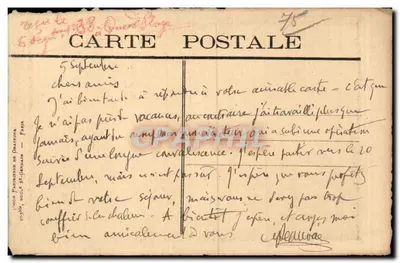 reçu le
75
CARTE POSTALE
5 Septembre
chers amis
J'ai bien tardé à répondre à votre aimable carte - c'est que
Je n'ai pas pris de vacances, au contraire j'ai travaillé plus que
jamais, ayant eu à remplacer qui a subi une opération
suivie d'une longue convalescence. J'espère partir vers le 20
Septembre, mais n'est pas sûr. J'espère que vous profitez
bien de votre séjour, mais vous ne devez pas trop
souffrir de la chaleur. A bientôt j'espère, et croyez moi
bien amicalement à vous